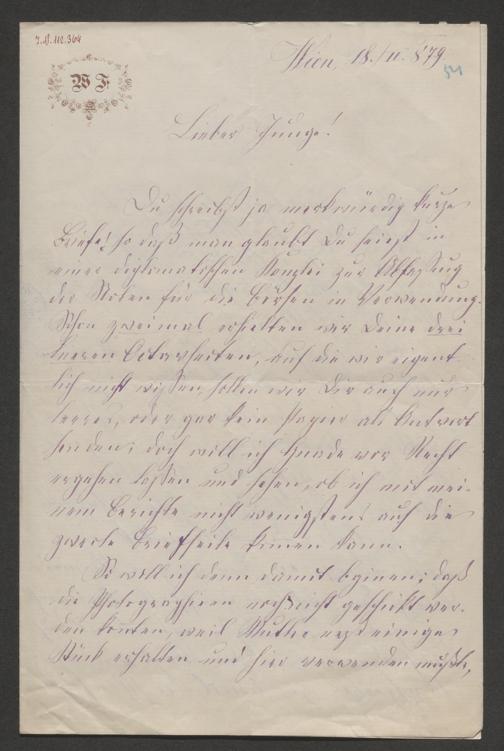 I.N. 112.364
W F
Wien, 18./11. 879.
51
Lieber Junge!
Du schreibst ja merkwürdig kurze
Briefe! so daß man glaubt Du seiest in
einer diplomatischen Kanzlei zur Abfassung
der Noten für die Börsen in Verwendung.
Schon zweimal erhielten wir Deine drei
leeren Octavseiten, auf die wir eigent-
lich nicht wissen, sollen wir Dir auch nur
leeres, oder gar kein Papier als Antwort
senden; doch will ich Gnade vor Recht
ergehen lassen und sehen, ob ich mit mei-
nem Berichte nicht wenigstens auf die
zweite Briefseite kommen kann.
So will ich denn damit beginnen; daß
die Photographieen noch nicht geschickt wer-
den konnten, weil Mutter erst einige
Stück erhalten und hier verwenden mußte,